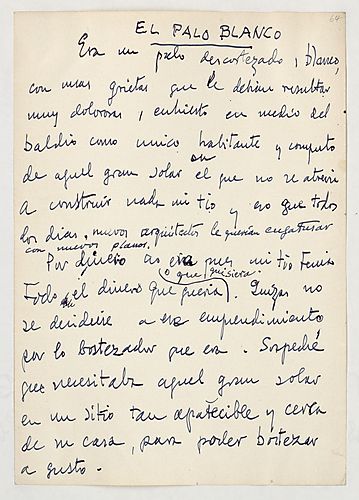 64
EL PALO BLANCO
Era un palo descortezado, blanco,
con unas grietas que le debían resultar
muy dolorosas, enhiesto en medio del
baldío como único habitante y cómputo
de aquel gran solar en el que no se atrevía
a construir nada mi tío y eso que todos
los días nuevos arquitectos le querían engatusar
con nuevos planos.
Por dinero no era pues mi tío tenía
todo el dinero que quería o que quisiera. Quizás no
se decidía a ese emprendimiento
por lo bostezador que era. Sospeché
que necesitaba aquel gran solar
en un sitio tan apetecible y cerca
de su casa, para poder bostezar
a gusto.